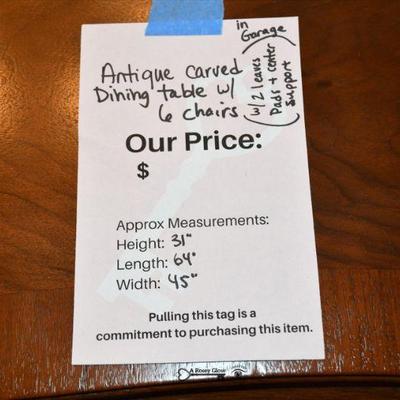 in
Garage
Antique carved
Dining table w/
6 chairs
(w/ 2 leaves
Pads + center
support)
Our Price:
$
Approx Measurements:
Height: 31"
Length: 64"
Width: 45"
Pulling this tag is a
commitment to purchasing this item.
A Rosey Glow